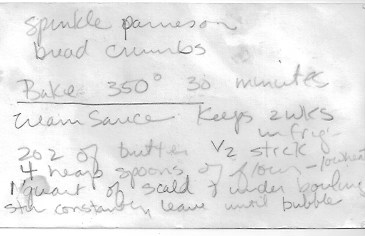 spinkle parmeson
bread crumbs
Bake 350° 30 minutes
Cream Sauce Keeps 2 wks
in frig
2 oz of butter 1/2 stick
4 heap spoons of flour -
1 quart of scald & under
stir constantly leave until bubble